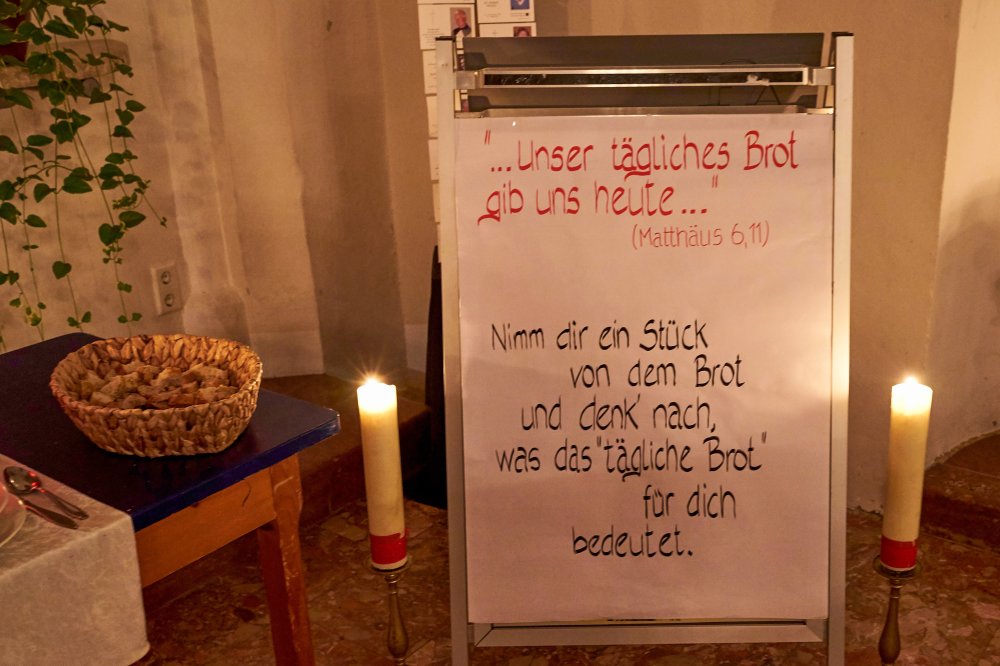 "...Unser tägliches Brot
gib uns heute..."
(Matthäus 6,11)
Nimm dir ein Stück
von dem Brot
und denk' nach,
was das "tägliche Brot"
für dich
bedeutet.